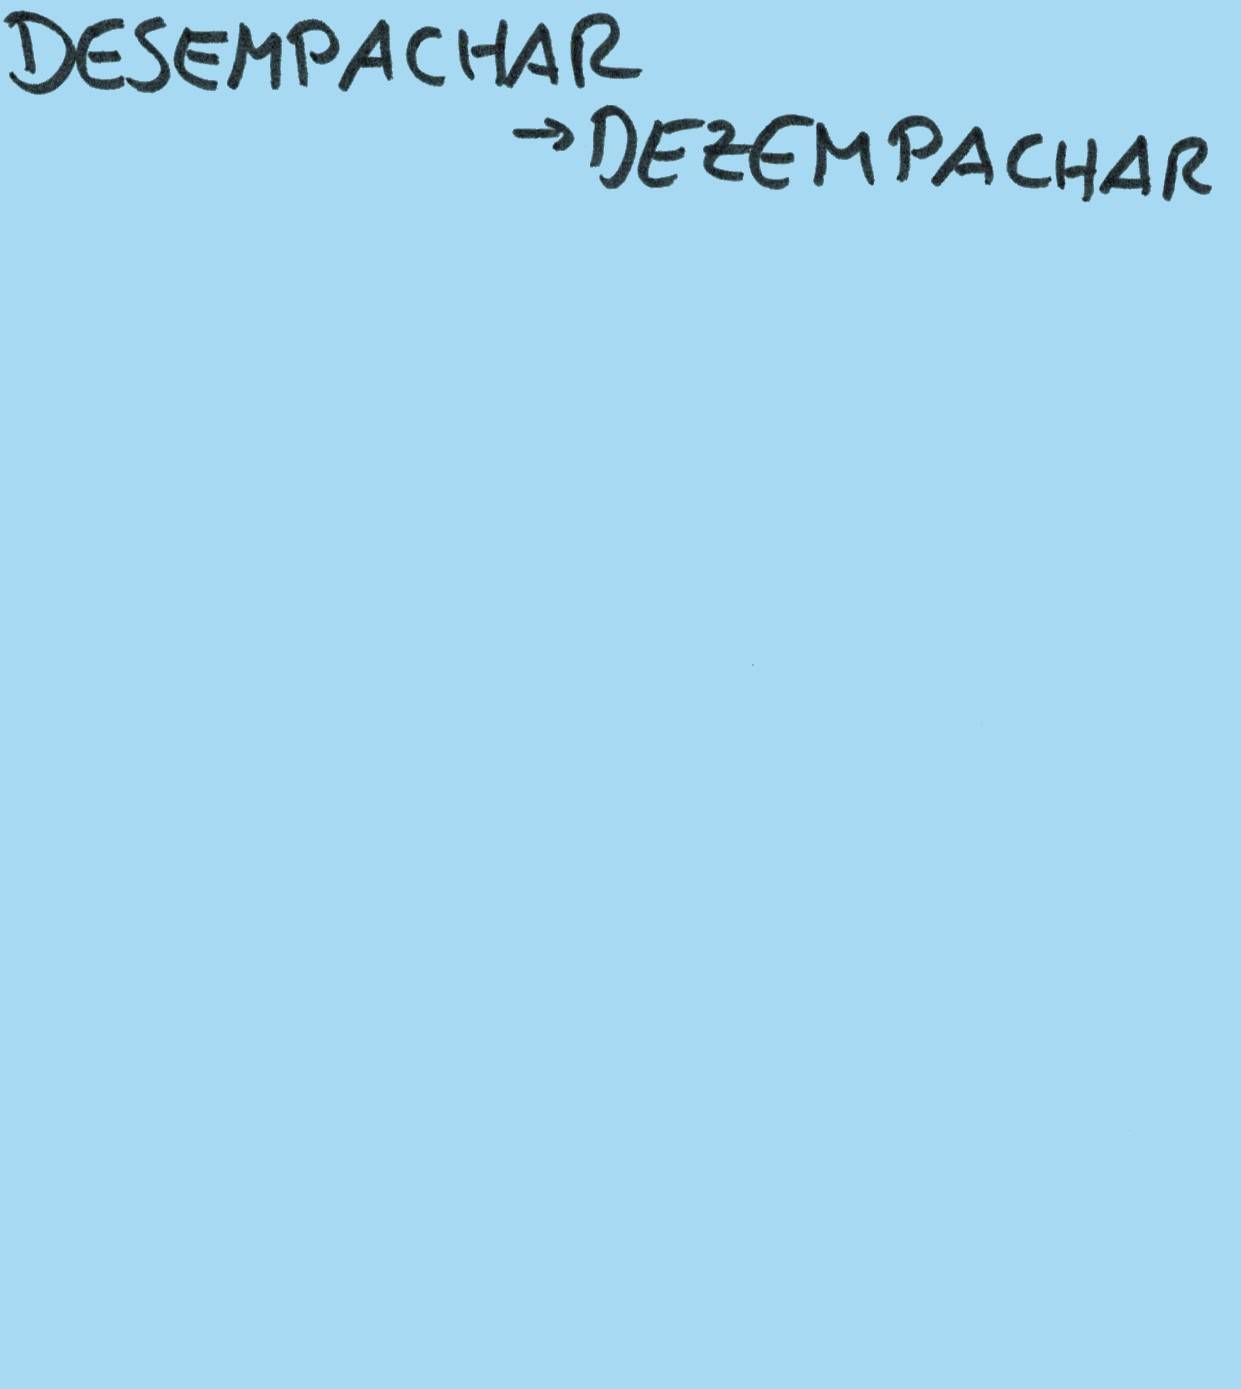 DESEMPACHAR
→ DEZEMPACHAR